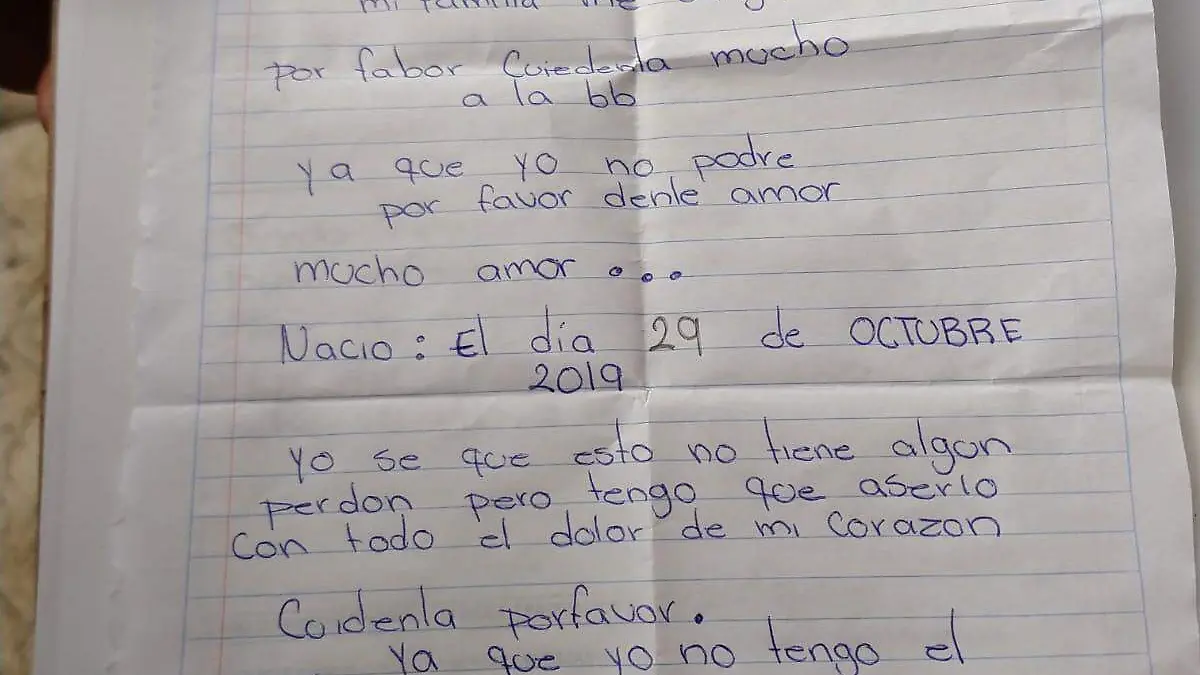 mi familia me
por fabor Cuiedenla mucho
a la bb
ya que yo no podre
por favor denle amor
mucho amor...
Nacio: El dia 29 de OCTUBRE
2019
yo se que esto no tiene algun
perdon pero tengo que aserlo
con todo el dolor de mi corazon
Cuidenla porfavor.
ya que yo no tengo el